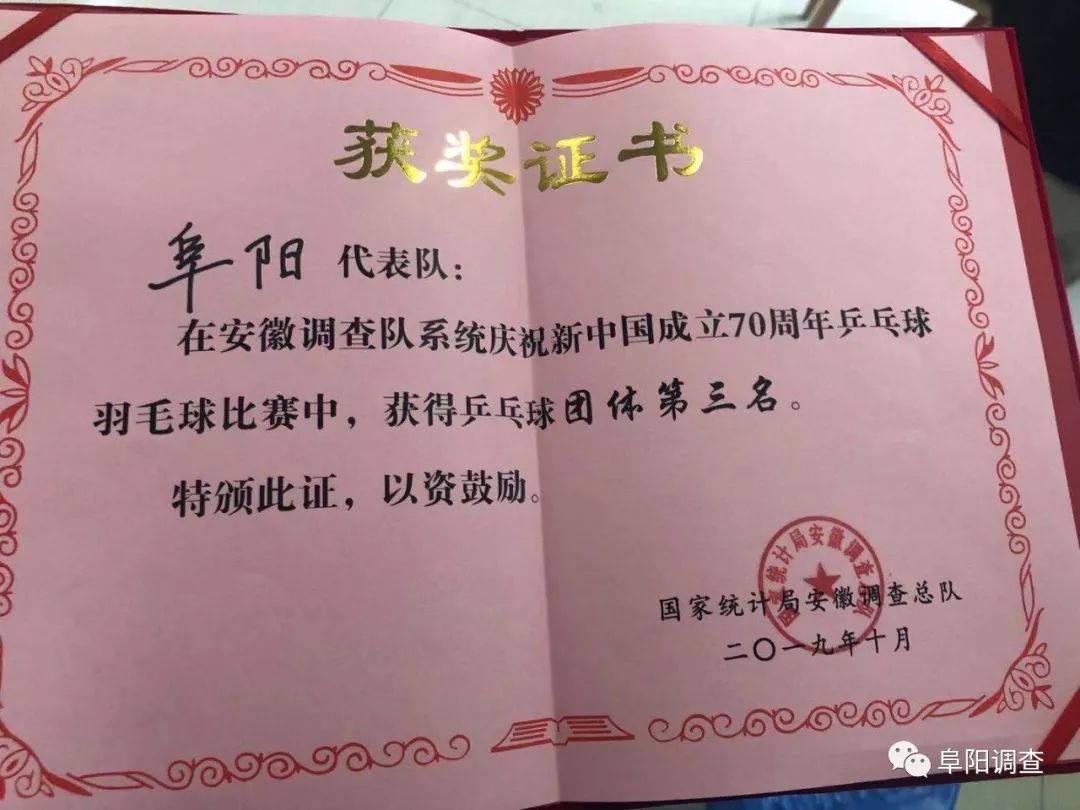 获奖证书
阜阳代表队：
在安徽调查队系统庆祝新中国成立70周年乒乓球
羽毛球比赛中，获得乒乓球团体第三名。
特颁此证，以资鼓励。
国家统计局安徽调查总队
国家统计局安徽调查总队
二〇一九年十月
阜阳调查